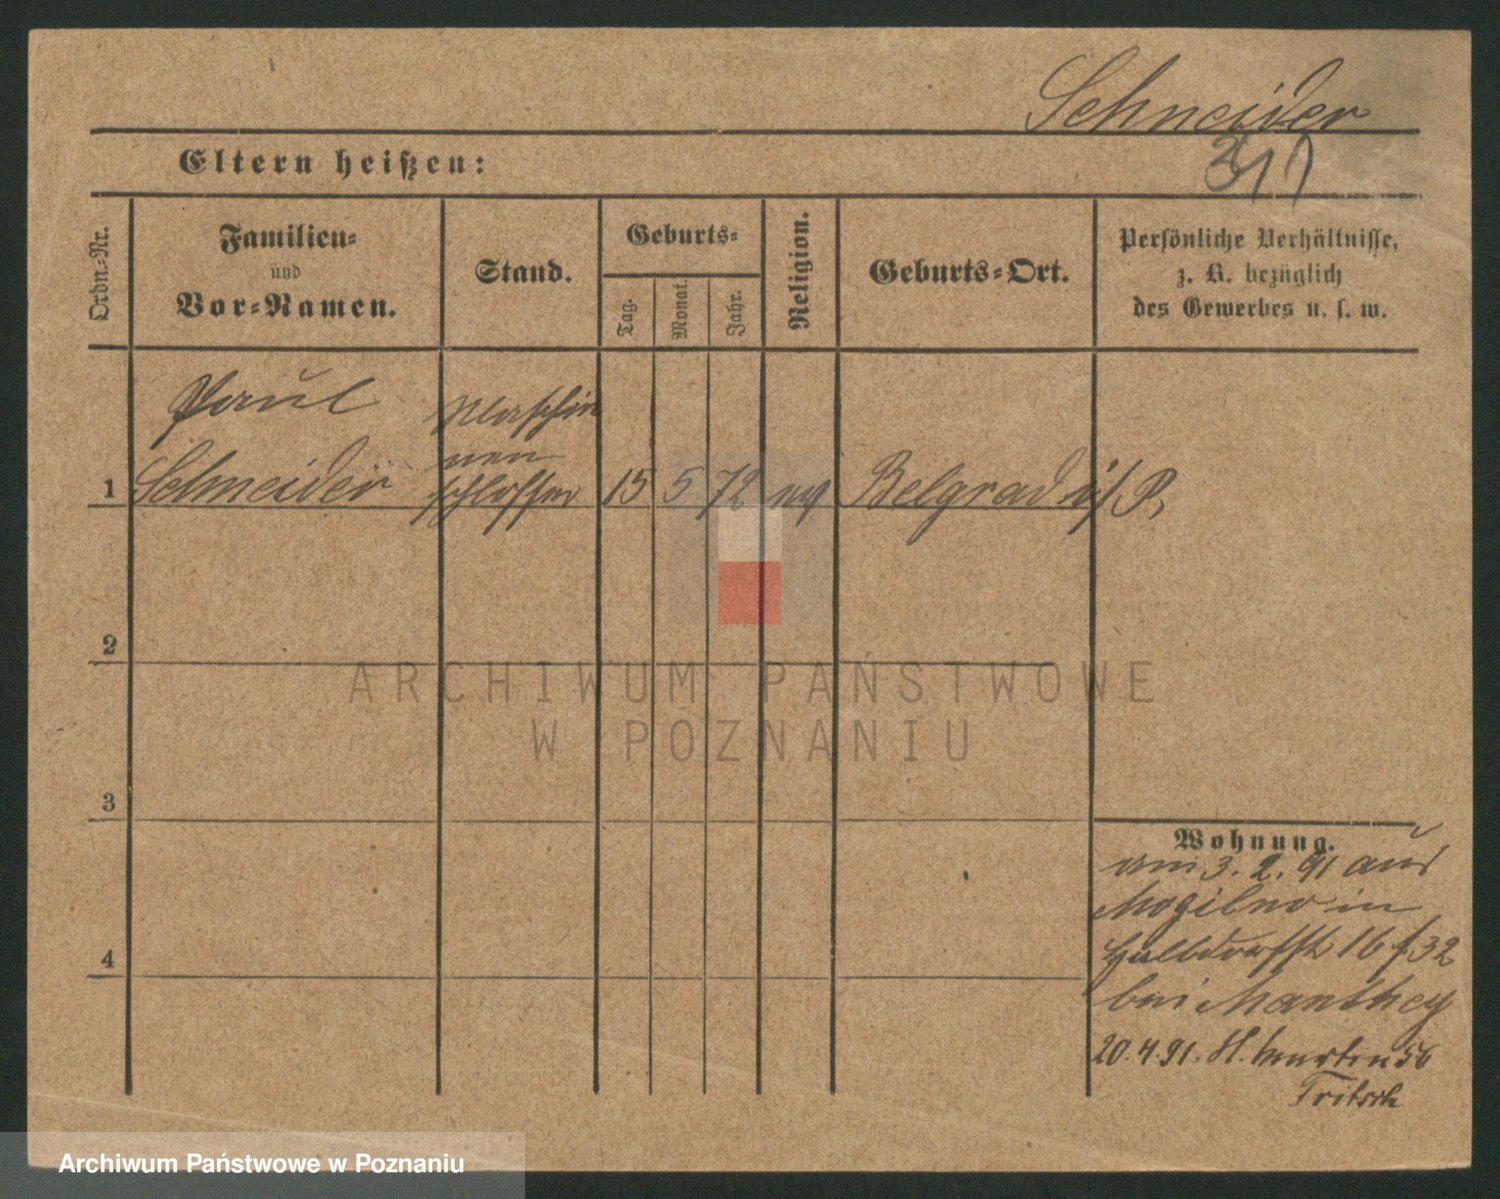 Schneider
Eltern heißen:
Ordn.-Nr.
Familien-
und
Vor-Namen.
Stand.
Geburts-
Tag.
Monat.
Jahr.
Religion.
Geburts-Ort.
Persönliche Verhältnisse,
z. B. bezüglich
des Gewerbes u. s. w.
Paul
Schneider
Maschin
nen
schlosser
1
15
5
72
ev
Belgrad i/P.
2
3
4
Wohnung.
am 3. 2. 91 aus
Mogilno in
Halbdorfstr 16
bei Manthey
20.4.91. St. Martin 56
Fritsch
ARCHIWUM PAŃSTWOWE
W POZNANIU
Archiwum Państwowe w Poznaniu